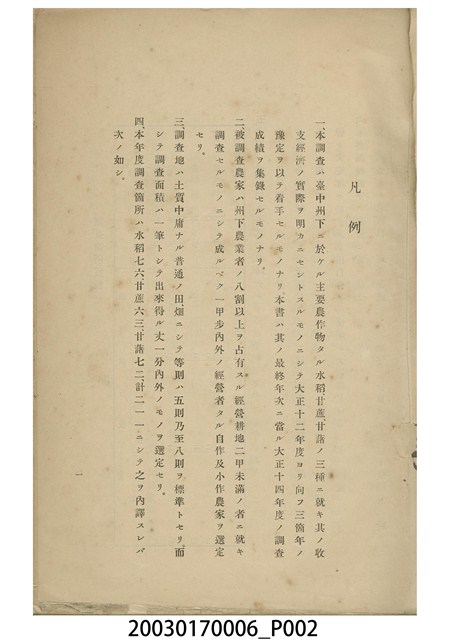 凡例
一、本調査ハ臺中州下ニ於ケル主要農作物タル水稻甘蔗、甘藷ノ三種ニ就キ其ノ收
支經濟ノ實際ヲ明カニセントスルモノニシテ大正十二年度ヨリ向フ三箇年ノ
豫定ヲ以テ着手セルモノナリ、本書ハ其ノ最終年次ニ當ル大正十四年度ノ調査
成績ヲ集錄セルモノナリ。
二、被調査農家ハ州下農業者ノ八割以上ヲ占有スル經營耕地二甲未滿ノ者ニ就キ
調査セルモノニシテ成ルベク一甲步內外ノ經營者タル自作及小作農家ヲ選定
セリ。
三、調査地ハ土質中庸ナル普通ノ田、畑ニシテ等則ハ五則乃至八則ヲ標準トセリ。而
シテ調査面積ハ一筆トシテ出來得ル丈一分內外ノモノヲ選定セリ。
四、本年度調査箇所ハ水稻七六、甘蔗六三、甘藷七二、計二一一ニシテ之ヲ內譯スレバ
次ノ如シ。
一
20030170006_P002